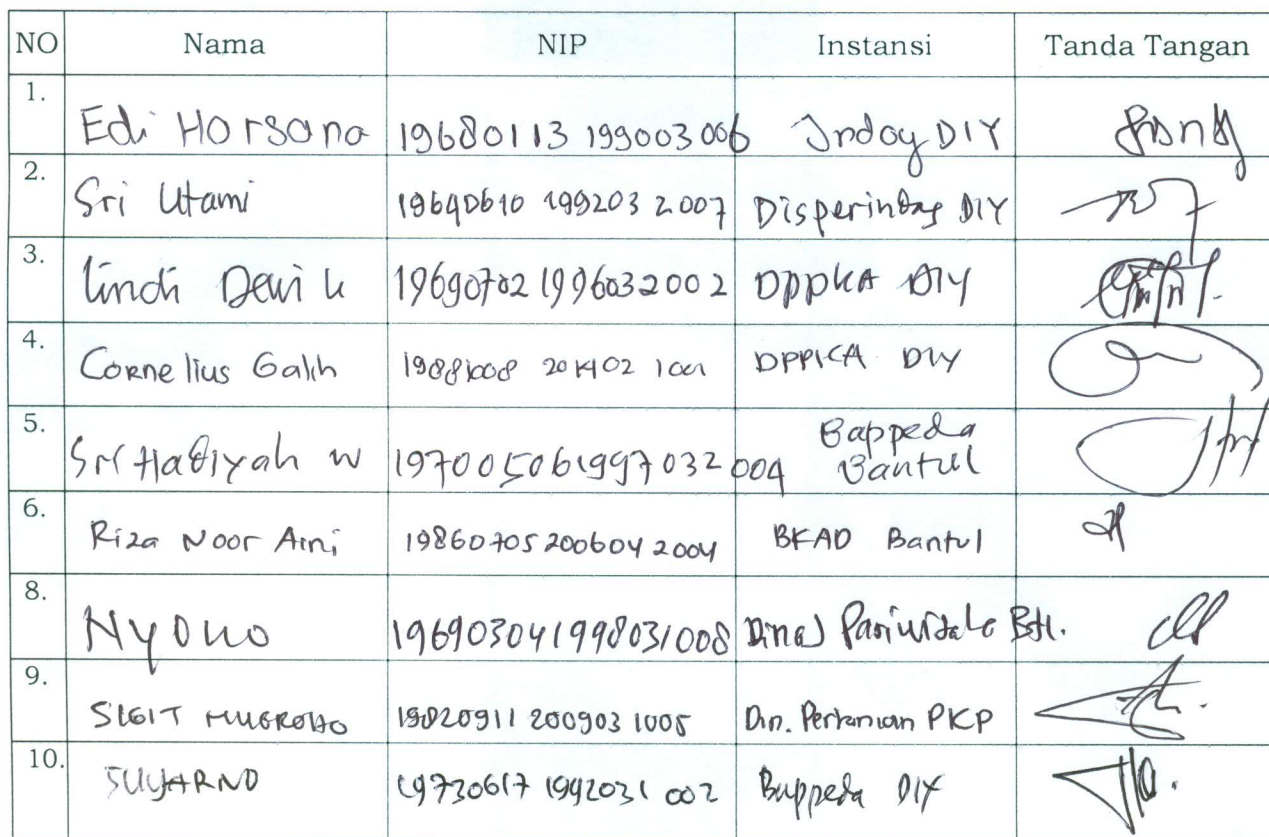 NO Nama NIP Instansi Tanda Tangan
1. Edi Horsono 19680113 199003 006 Indag DIY
2. Sri Utami 19640610 199203 2007 Disperindag DIY
3. Dewi K 19690702 1996032002 DPPKA DIY
4. Cornelius Galih 19881008 201402 1001 DPPKA DIY
5. Sri Hadiyah W 197005061997032004 Bappeda
Bantul
6. Riza Noor Aini 198607052006042004 BKAD Bantul
8. Nyono 196903041998031008 Dinas Pariwisata Btl.
9. SIGIT NUGROHO 19820911 200903 1005 Din. Pertanian PKP
10. SUYARNO 19730617 1992031 002 Bappeda DIY